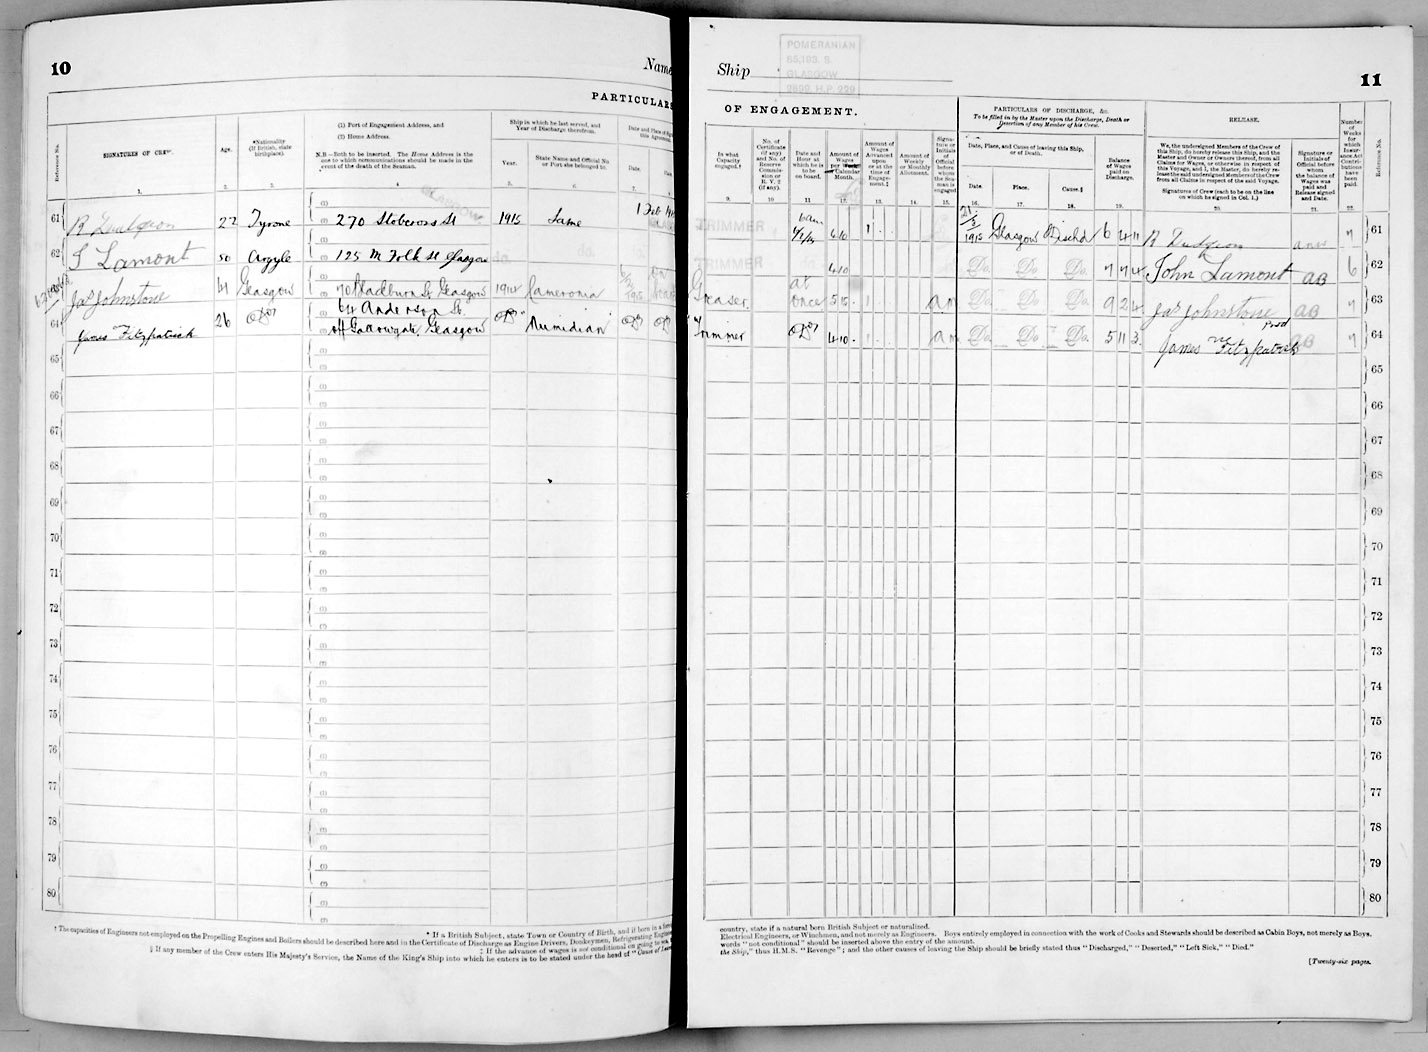 10
Name
PARTICULARS
Reference No.
SIGNATURES OF CREW.
Age.
*Nationality
(if British, state
birthplace).
(1) Port of Engagement Address, and
(2) Home Address.
N.B.—Both to be inserted. The Home Address is the
one to which communications should be made in the
event of the death of the Seaman.
Ship in which he last served, and
Year of Discharge therefrom.
Year.
State Name and Official No.
or Port she belonged to.
Date.
1. 2. 3. 4. 5. 6. 7.
61 22 Tyrone 270 Stobcross St 1915 Same 1 Feb
62 S Lamont 50 Argyle 125 Glasgow
Jas Johnstone 41 Glasgow Glasgow 1914 Cameronia
64 Anderson St.
64 James Fitzpatrick 26 Do off Gallowgate Glasgow Do Numidian Do Do
65
66
67
68
69
70
71
72
73
74
75
76
77
78
79
80
* If a British Subject, state Town or Country of Birth, and if born in a
† The capacities of Engineers not employed on the Propelling Engines and Boilers should be described here and in the Certificate of Discharge as Engine Drivers, Donkeymen, Refrigerating
‡ If the advance of wages is not conditional on going to sea,
§ If any member of the Crew enters His Majesty's Service, the Name of the King's Ship into which he enters is to be stated under the head of "Cause of
Ship
POMERANIAN
GLASGOW
11
OF ENGAGEMENT.
PARTICULARS OF DISCHARGE, &c.
To be filled in by the Master upon the Discharge, Death or
Desertion of any Member of his Crew.
RELEASE.
In what
Capacity
engaged.†
No. of
Certificate
(if any)
and No. of
Reserve
Commission
or
R. V. 2
(if any).
Date and
Hour at
which he is
to be
on board.
Amount of
Wages
per
Calendar
Month.
Amount of
Wages
Advanced
upon
or at the
time of
Engagement.‡
Amount of
Weekly
or
Monthly
Allotment.
Signature or
Initials of
Official
before
whom the
Seaman is
engaged
Date, Place, and Cause of leaving this Ship,
or of Death.
Date. Place. Cause.§
Balance
of
Wages
paid on
Discharge.
We, the undersigned Members of the Crew of
this Ship, do hereby release this Ship, and the
Master and Owner or Owners thereof, from all
Claims for Wages, or otherwise in respect of
this Voyage, and I, the Master, do hereby release
the said undersigned Members of the Crew
from all Claims in respect of the said Voyage.
Signatures of Crew (each to be on the line
on which he signed in Col. 1.)
Signature or
Initials of
Official before
whom
the balance of
Wages was
paid and
Release signed
and Date.
Number
of
Weeks
for
which
Insurance
Act
Contributions
have
been
paid.
Reference No.
9. 10 11 12. 13. 14. 15. 16. 17. 18. 19. 20. 21. 22.
TRIMMER 6am 6 10 1 1915 Glasgow Dischd 6 4 11 7 61
TRIMMER 4 10 Do. Do. Do. 7 7 4 John Lamont AB 6 62
Greaser at once 5 15 1 Do. Do. Do. 9 2 4 Jas Johnstone AB 7 63
Trimmer Do 4 10 Do. Do. Do. 5 11 3 James Fitzpatrick AB 7 64
65
66
67
68
69
70
71
72
73
74
75
76
77
78
79
80
country, state if a natural born British Subject or naturalized.
Electrical Engineers, or Winchmen, and not merely as Engineers. Boys entirely employed in connection with the work of Cooks and Stewards should be described as Cabin Boys, not merely as Boys.
words "not conditional" should be inserted above the entry of the amount.
the Ship," thus H.M.S. "Revenge"; and the other causes of leaving the Ship should be briefly stated thus "Discharged," "Deserted," "Left Sick," "Died."
[Twenty-six pages.